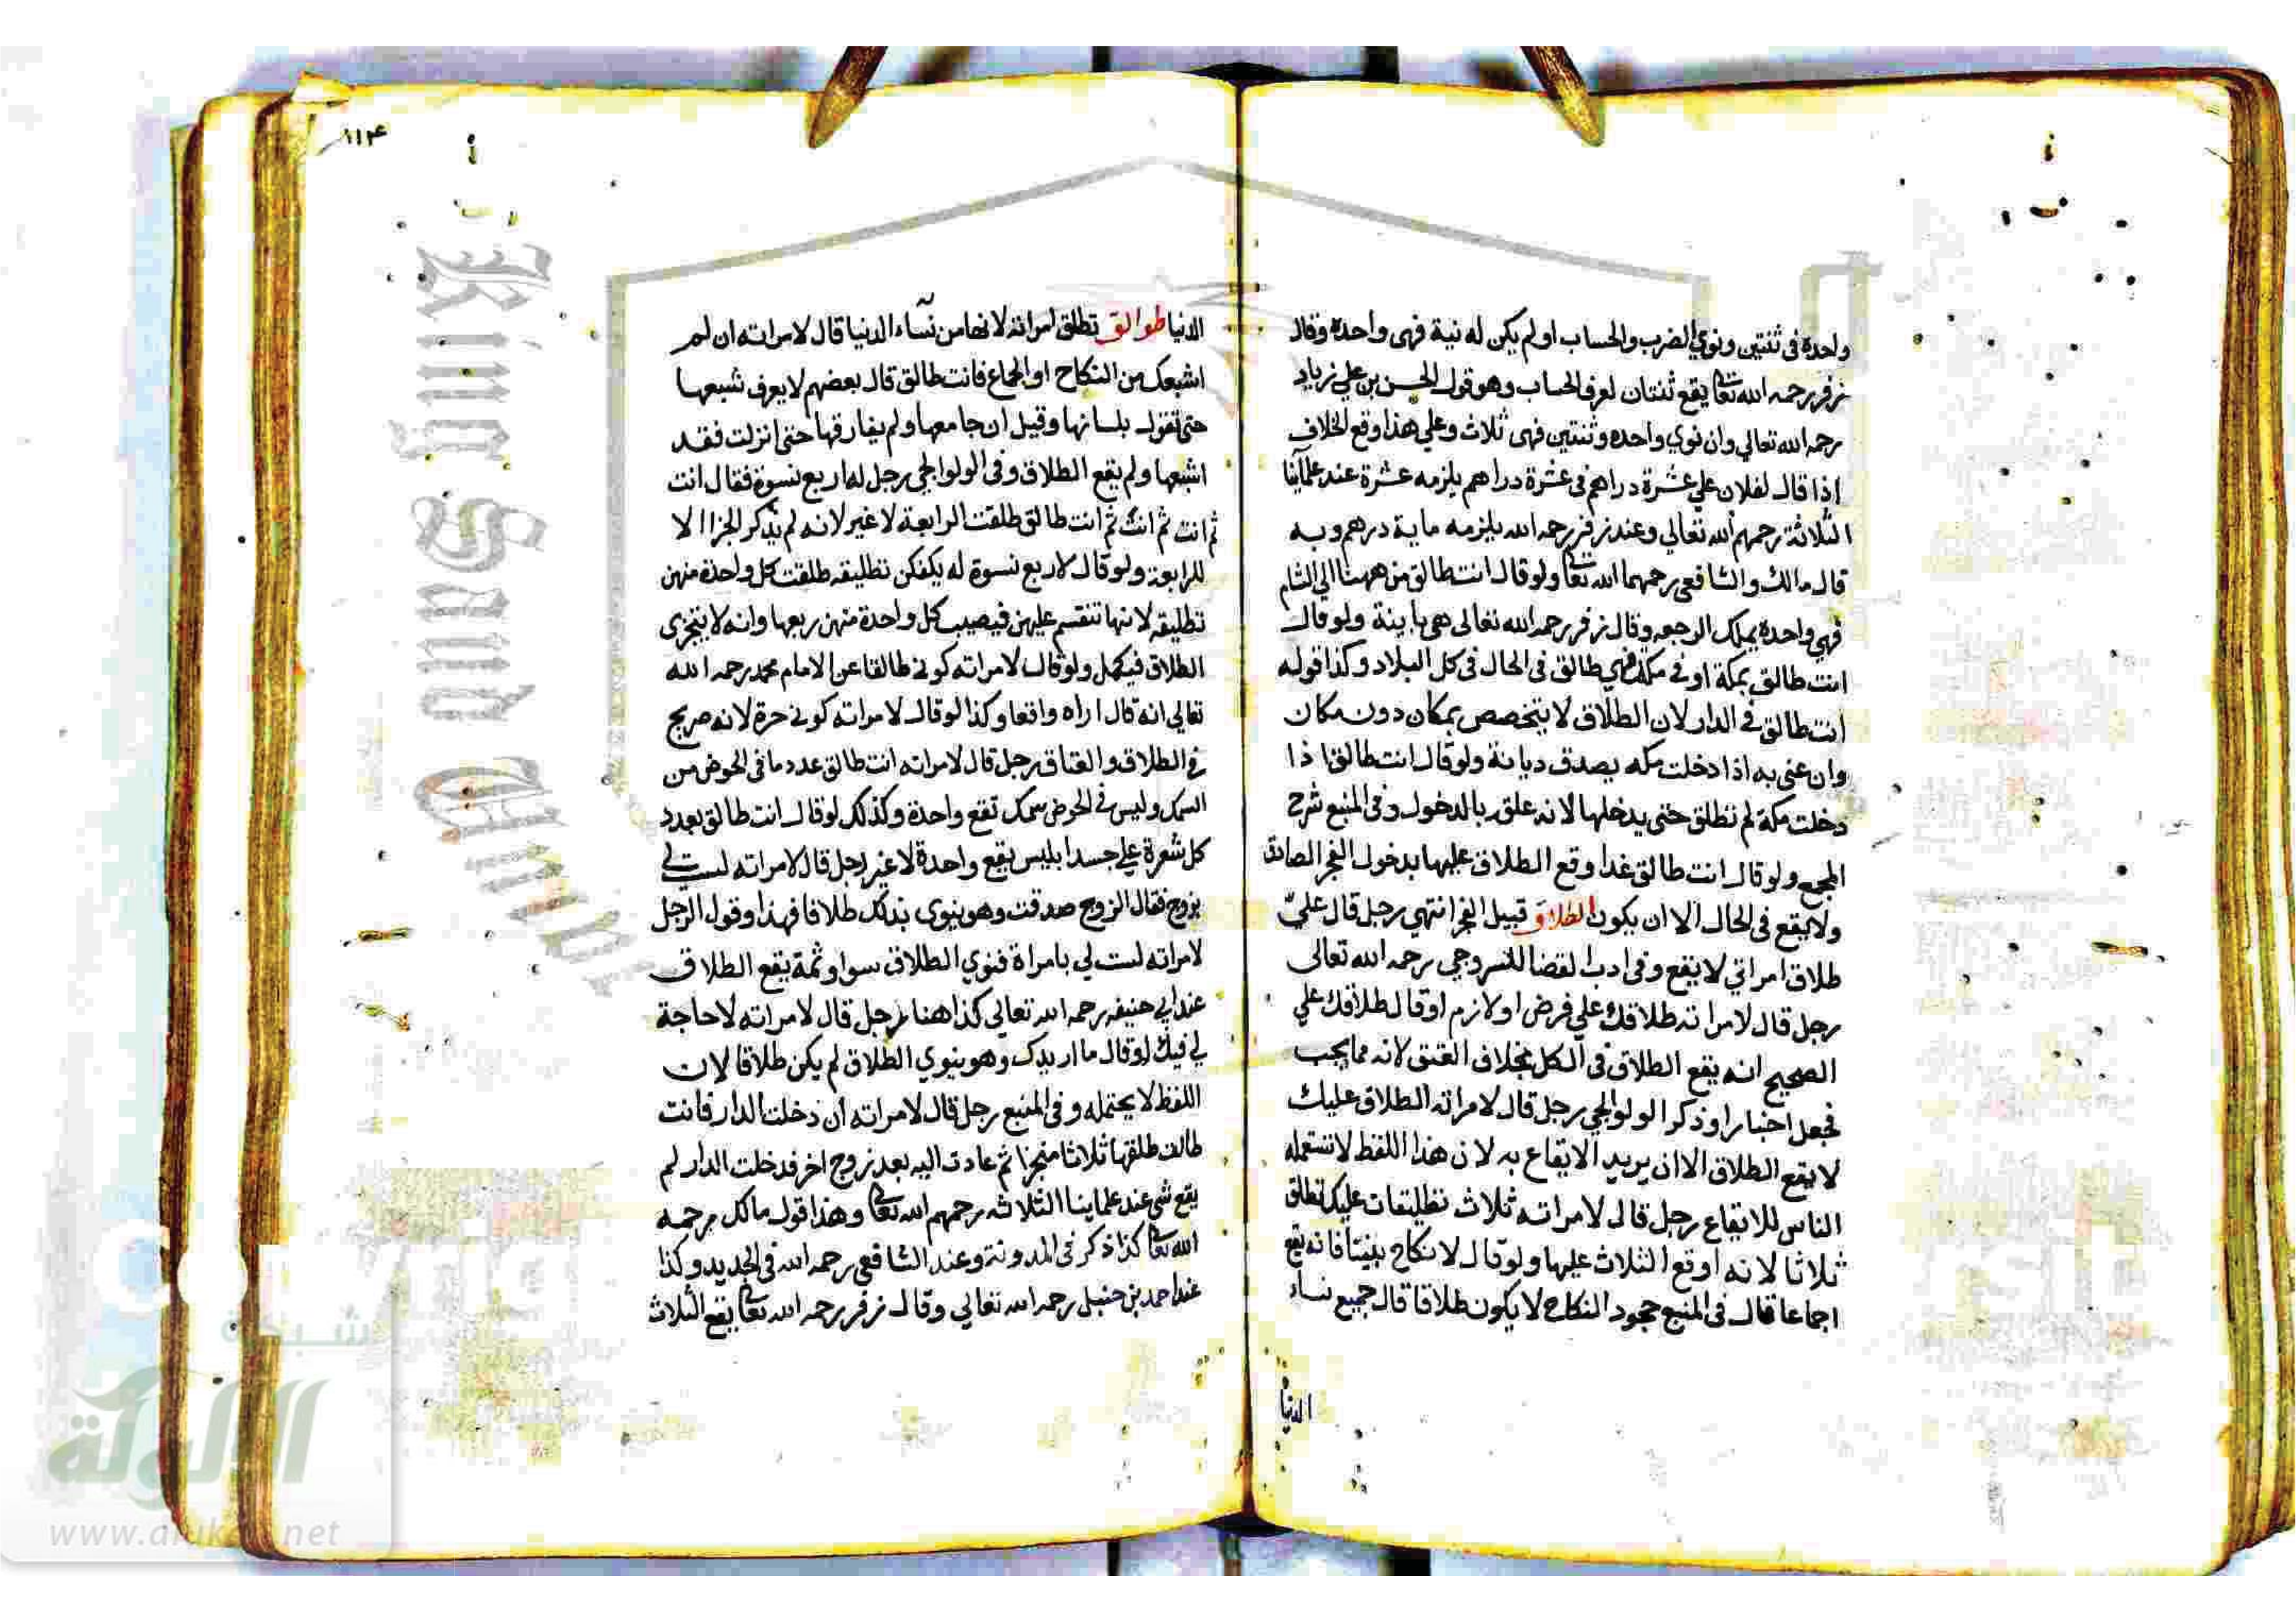 واحدة في ثنتين ونوي الضرب والحساب او لم يكن له نية فهى واحدة وقال
زفر رحمه الله تعا يقع ثنتان لعرف الحساب وهو قول الحسن بن علي زياد
رحمه الله تعالي وان نوي واحده وثنتين فهى ثلاث وعلي هذا وقع الخلاف
اذا قال لفلان علي عشرة دراهم في عشرة دراهم يلزمه عشرة عند علمآئنا
الثلاثة رحمهم الله تعالي وعند زفر رحمه الله يلزمه ماية درهم وبه
قال مالك والشافعي رحمهما الله تعا ولو قال انت طالق من ههنا الي الشام
فهي واحدة يملك الرجعه وقال زفر رحمه الله تعالى هي باينة ولو قال
انت طالق بمكة او في مكة فهي طالق في الحال في كل البلاد وكذا قوله
انت طالق في الدار لان الطلاق لا يتخصص بمكان دون مكان
وان عني به اذا دخلت مكه يصدق ديانة ولو قال انت طالق اذا
دخلت مكة لم تطلق حتى يدخلها لانه علق بالدخول وفي المنبع شرح
المجمع ولو قال انت طالق غدا وقع الطلاق عليها بدخول الفجر الصادق
ولا يقع في الحال الا ان يكون الطلاق قبيل الفجر انتهي رجل قال عليّ
طلاق امراتي لا يقع وفي ادب القضا للسروجي رحمه الله تعالى
رجل قال لامراته طلاقك علي فرض او لازم او قال طلاقك علي
الصحيح انه يقع الطلاق في الكل بخلاف العتق لانه مما يجب
فجعل اخبارا وذكر الولوالجي رجل قال لامراته الطلاق عليك
لا يقع الطلاق الا ان يريد الايقاع به لان هذا اللفظ لا تستعمله
الناس للايقاع رجل قال لامراته ثلاث تطليقات عليك تطلق
ثلاثا لانه اوقع الثلاث عليها ولو قال لا نكاح بيننا فانه يقع
اجماعا قال في المنبع جحود النكاح لا يكون طلاقا قال جميع نساء
الدنيا
١١٤
الدنيا طوالق تطلق امراته لانها من نسآء الدنيا قال لامراته ان لم
اشبعك من النكاح او الجماع فانت طالق قال بعضهم لا يعرف شبعها
حتى تقول بلسانها وقيل ان جامعها ولم يفارقها حتى انزلت فقد
اشبعها ولم يقع الطلاق وفي الولوالجي رجل له اربع نسوة فقال انت
ثم انت ثم انت ثم انت طالق طلقت الرابعة لا غير لانه لم يذكر الجزا الا
للرابعة ولو قال لاربع نسوة له بكن تطليقه طلقت كل واحدة منهن
تطليقه لانها تنقسم عليهن فيصيب كل واحدة منهن ربعها وانه لا يتجزى
الطلاق فيكمل ولو قال لامراته كوني طالقا عن الامام محمد رحمه الله
تعالي انه قال اراه واقعا وكذا لو قال لامراته كوني حرة لانه صريح
في الطلاق والعتاق رجل قال لامراته انت طالق عدد ما في الحوض من
السمك وليس في الحوض سمك تقع واحدة وكذلك لو قال انت طالق بعدد
كل شعرة علي جسد ابليس يقع واحدة لا غير رجل قال لامراته لست لي
بزوج فقال الزوج صدقت وهو ينوى بذلك طلاقا فهذا وقول الرجل
لامراته لست لي بامراة فنوي الطلاق سوا وثمة يقع الطلاق
عند ابي حنيفه رحمه الله تعالي كذا هنا رجل قال لامراته لا حاجة
لي فيك او قال ما اريدك وهو ينوي الطلاق لم يكن طلاقا لان
اللفظ لا يحتمله وفي المنبع رجل قال لامراته ان دخلت الدار فانت
طالق طلقها ثلاثا منجزا ثم عادت اليه بعد زوج اخر فدخلت الدار لم
يقع شي عند علماينا الثلاثه رحمهم الله تعا وهذا قول مالك رحمه
الله تعا كذا ذكر في المدونة وعند الشافعي رحمه الله في الجديد وكذا
عند احمد بن حنبل رحمه الله تعالي وقال زفر رحمه الله تعا يقع الثلاث
King Saud
شبكة
الألوكة
www.alukah.net